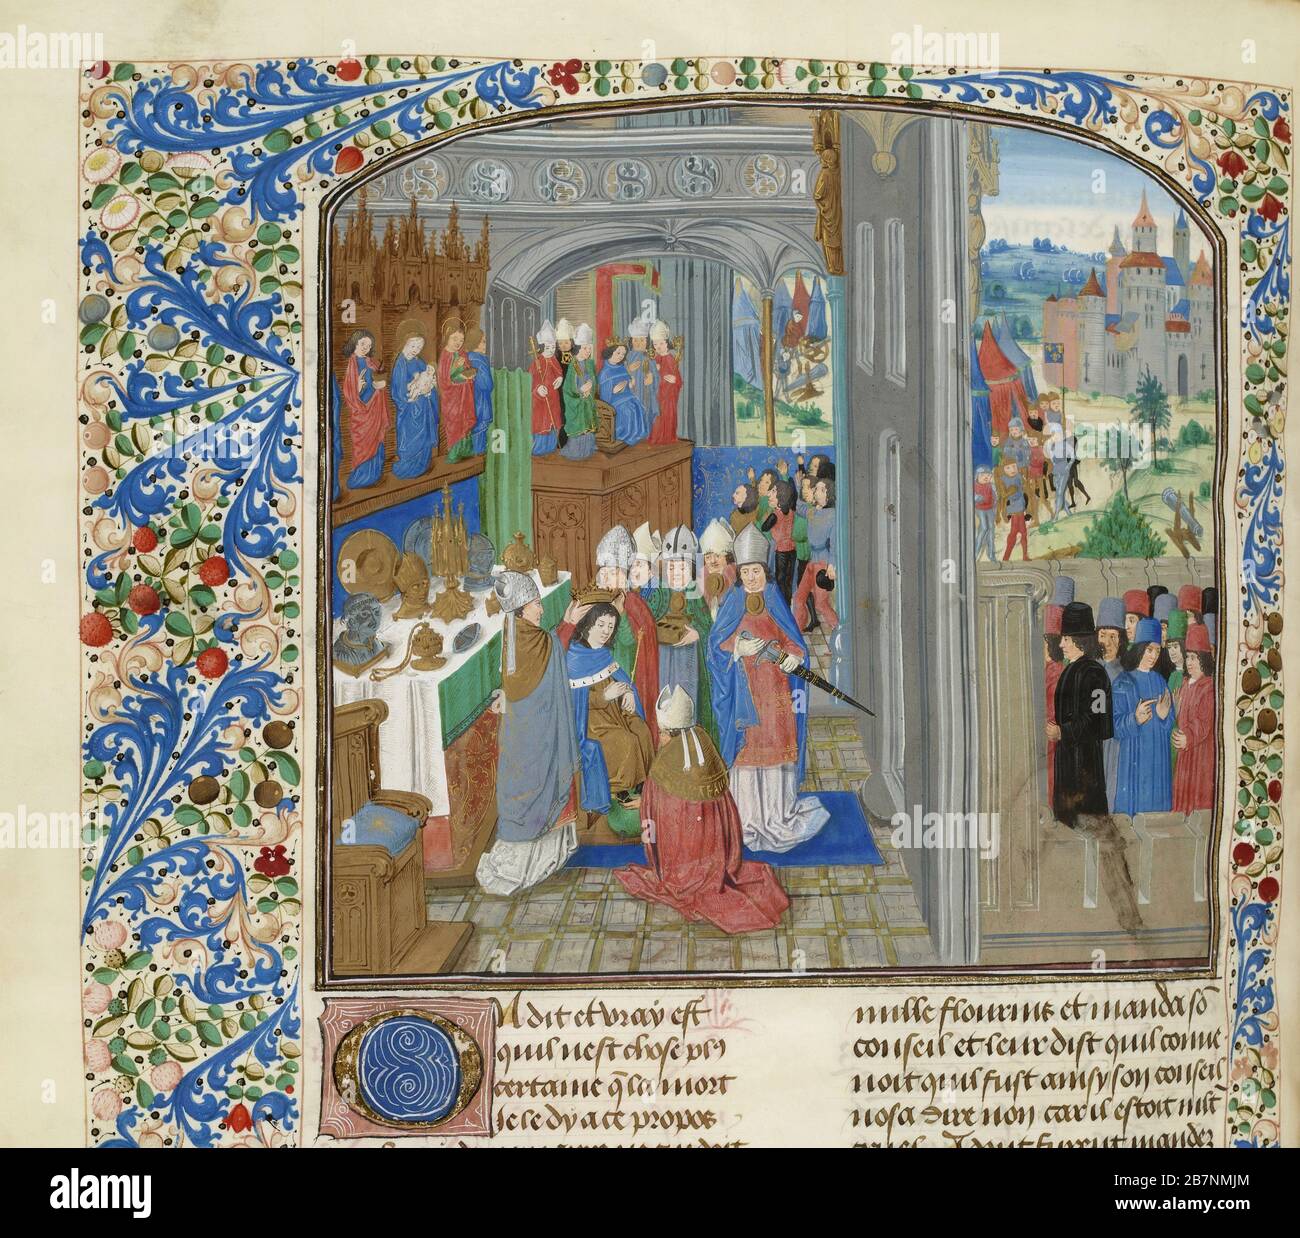 On dit et vray est
quil nest chose plꝯ
certaine q̃ la mort
Je le dy a ce propos
mille flourins et manda sõ
conseil et leur dist quil conue
noit quil fust ainsy son conseil
nosa dire non car il estoit mlt
alamy
Image ID: 2B7NMJM
www.alamy.com